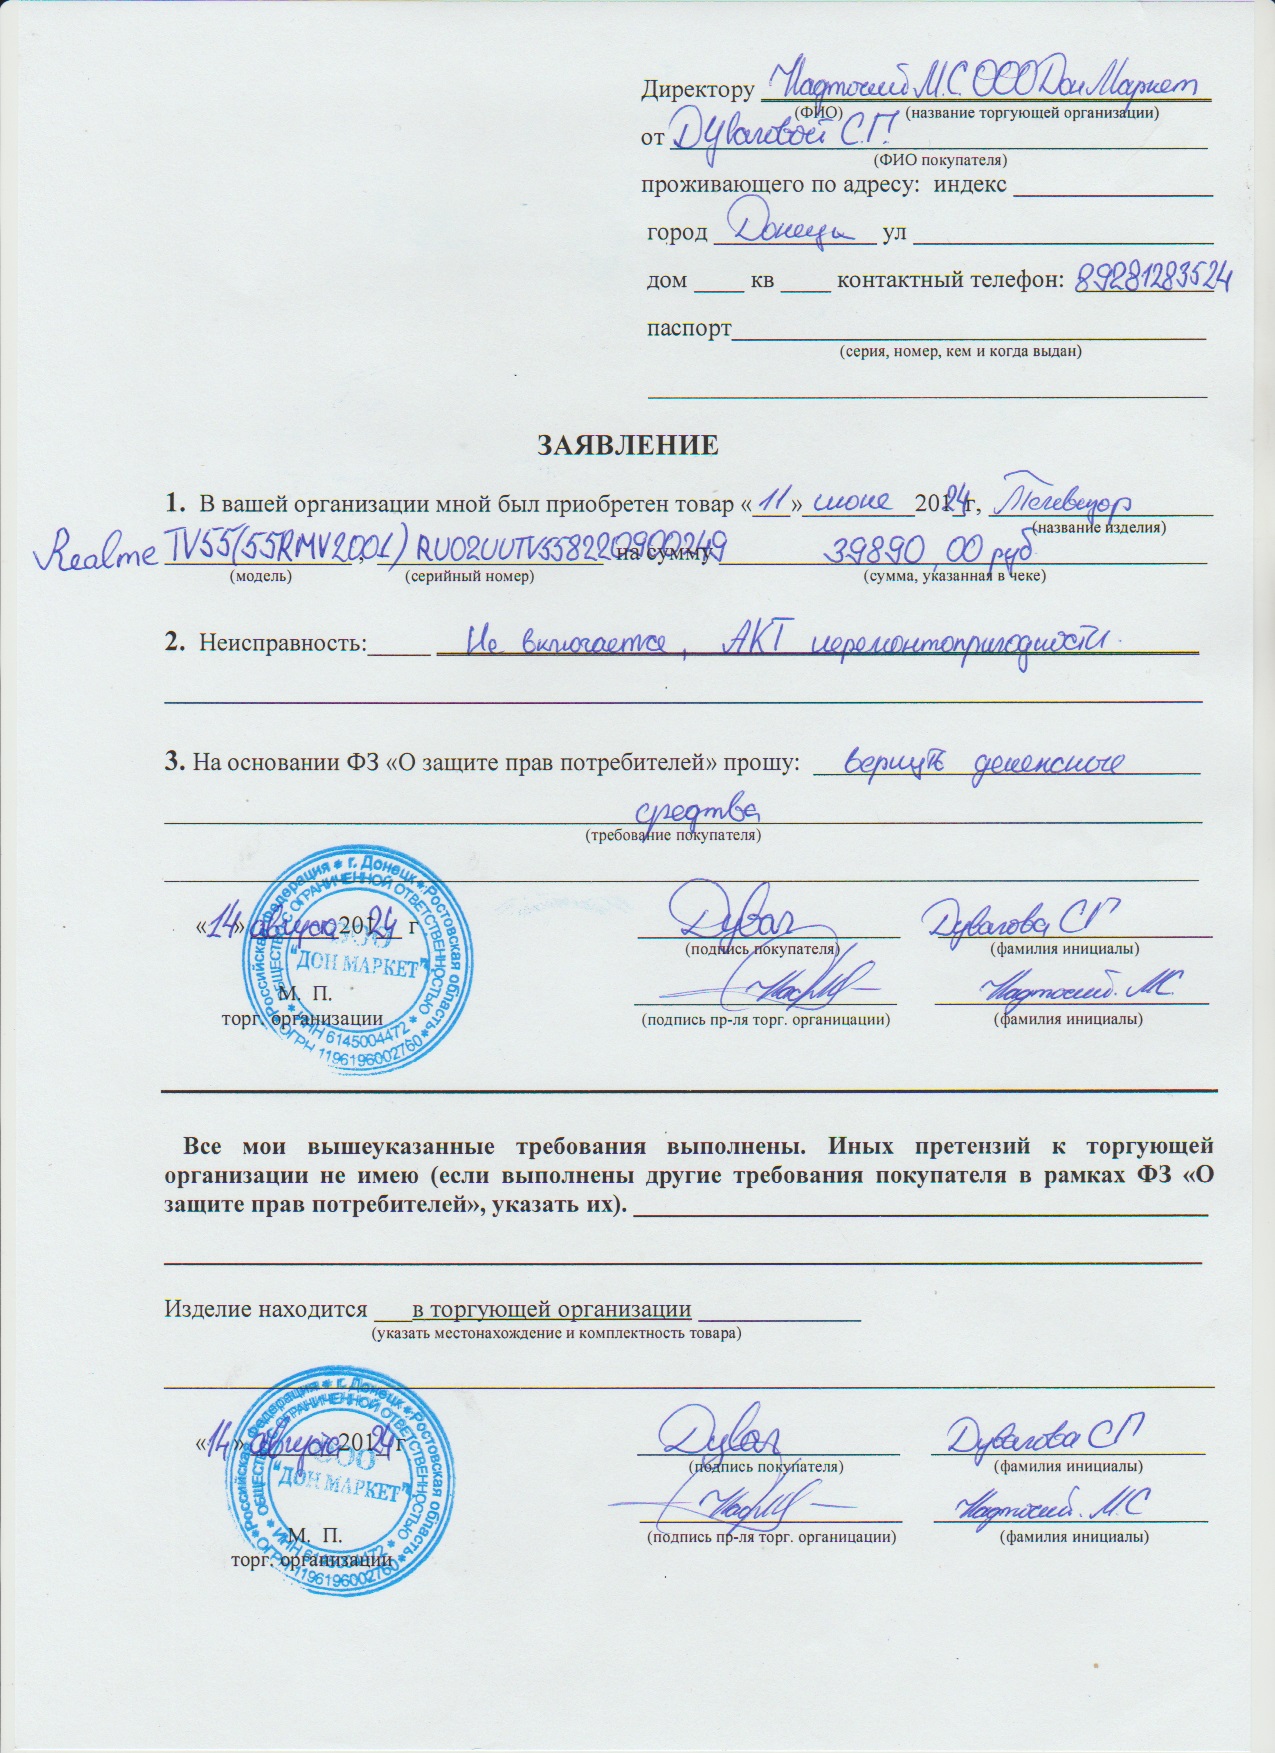 Директору Надточий М.С. ООО Дон Маркет
(ФИО) (название торгующей организации)
от Дуваловой С.П.
(ФИО покупателя)
проживающего по адресу: индекс
город Донецк ул
дом ____ кв ____ контактный телефон: 89281283524
паспорт
(серия, номер, кем и когда выдан)
ЗАЯВЛЕНИЕ
1. В вашей организации мной был приобретен товар «11» июне 20124 г, Телевизор
(название изделия)
Realme TV55(55RMV2001), RU02UUTV5582209900249 на сумму 39890,00 руб
(модель) (серийный номер) (сумма, указанная в чеке)
2. Неисправность: Не включается, АКТ неремонтопригодности.
3. На основании ФЗ «О защите прав потребителей» прошу: вернуть денежные
средтва
(требование покупателя)
«14» августа 201 24 г
(подпись покупателя) Дувалова СП (фамилия инициалы)
М. П.
торг. организации
(подпись пр-ля торг. органицации) Надточий. М.С. (фамилия инициалы)
Российская Федерация * г. Донецк * Ростовская область *
ОБЩЕСТВО С ОГРАНИЧЕННОЙ ОТВЕТСТВЕННОСТЬЮ
ООО
"ДОН МАРКЕТ"
* ИНН 6145004472 *
ОГРН 1196196002760
Все мои вышеуказанные требования выполнены. Иных претензий к торгующей
организации не имею (если выполнены другие требования покупателя в рамках ФЗ «О
защите прав потребителей», указать их).
Изделие находится ___в торгующей организации
(указать местонахождение и комплектность товара)
«14» августа 201 24 г
(подпись покупателя) Дувалова СП (фамилия инициалы)
М. П.
торг. организации
(подпись пр-ля торг. органицации) Надточий. М.С (фамилия инициалы)
Российская Федерация * г. Донецк * Ростовская область *
ОБЩЕСТВО С ОГРАНИЧЕННОЙ ОТВЕТСТВЕННОСТЬЮ
ООО
"ДОН МАРКЕТ"
* ИНН 6145004472 *
ОГРН 1196196002760